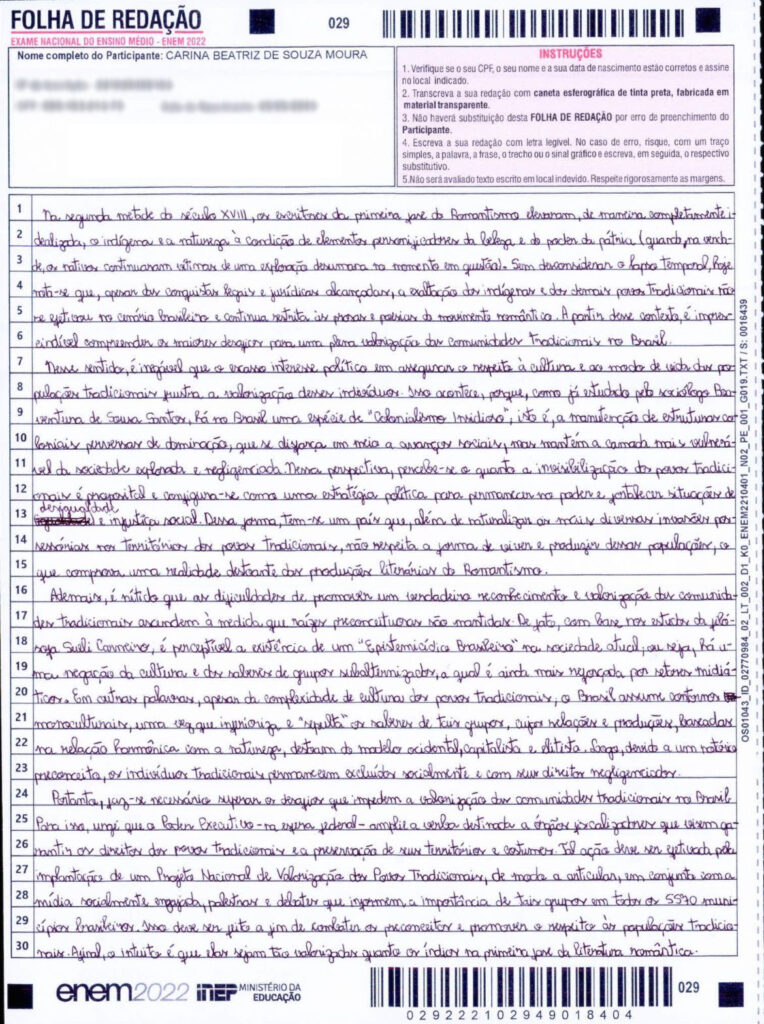 FOLHA DE REDAÇÃO
EXAME NACIONAL DO ENSINO MÉDIO - ENEM 2022
029
Nome completo do Participante: CARINA BEATRIZ DE SOUZA MOURA
INSTRUÇÕES
1. Verifique se o seu CPF, o seu nome e a sua data de nascimento estão corretos e assine
no local indicado.
2. Transcreva a sua redação com caneta esferográfica de tinta preta, fabricada em
material transparente.
3. Não haverá substituição desta FOLHA DE REDAÇÃO por erro de preenchimento do
Participante.
4. Escreva a sua redação com letra legível. No caso de erro, risque, com um traço
simples, a palavra, a frase, o trecho ou o sinal gráfico e escreva, em seguida, o respectivo
substitutivo.
5.Não será avaliado texto escrito em local indevido. Respeite rigorosamente as margens.
1 Na segunda metade do século XVIII, os escritores da primeira fase do Romantismo elevaram, de maneira completamente i-
2 dealizada, o indígena e a natureza à condição de elementos personificadores da beleza e do poder da pátria (quando, na verda-
3 de, os nativos continuaram vítimas de uma exploração desumana no momento em questão). Sem desconsiderar o lapso temporal, hoje
4 nota-se que, apesar das conquistas legais e jurídicas alcançadas, a exaltação dos indígenas e dos demais povos tradicionais não
5 se efetivou no cenário brasileiro e continua restrita às prosas e poesias do movimento romântico. A partir desse contexto, é impres-
6 cindível compreender os maiores desafios para uma plena valorização das comunidades tradicionais no Brasil.
7 Nesse sentido, é inegável que o escasso interesse político em assegurar o respeito à cultura e ao modo de vida das po-
8 pulações tradicionais frustra a valorização desses indivíduos. Isso acontece, porque, como já estudado pelo sociólogo Boa-
9 ventura de Sousa Santos, há no Brasil uma espécie de "Colonialismo Insidioso", isto é, a manutenção de estruturas co-
10 loniais perversas de dominação, que se disfarça em meio a avanços sociais, mas mantém a camada mais vulnerá-
11 vel da sociedade explorada e negligenciada. Nessa perspectiva, percebe-se o quanto a invisibilização dos povos tradici-
12 onais é proposital e configura-se como uma estratégia política para permanecer no poder e fortalecer situações de
desigualdade
13 e injustiça social. Dessa forma, tem-se um país que, além de naturalizar as mais diversas invasões pos-
14 sessórias nos territórios dos povos tradicionais, não respeita a forma de viver e produzir dessas populações, o
15 que comprova uma realidade destoante das produções literárias do Romantismo.
16 Ademais, é nítido que as dificuldades de promover um verdadeiro reconhecimento e valorização das comunida-
17 des tradicionais ascendem à medida que raízes preconceituosas são mantidas. De fato, com base nos estudos da filó-
18 sofa Sueli Carneiro, é perceptível a existência de um "Epistemicídio Brasileiro" na sociedade atual, ou seja, há u-
19 ma negação da cultura e dos saberes de grupos subalternizados, a qual é ainda mais reforçada por setores midiá-
20 ticos. Em outras palavras, apesar da complexidade de cultura dos povos tradicionais, o Brasil assume contornos
21 monoculturais, uma vez que inferioriza e "sepulta" os saberes de tais grupos, cujas relações e produções, baseadas
22 na relação harmônica com a natureza, destoam do modelo ocidental, capitalista e elitista. Logo, devido a um notório
23 preconceito, os indivíduos tradicionais permanecem excluídos socialmente e com seus direitos negligenciados.
24 Portanto, faz-se necessário superar os desafios que impedem a valorização das comunidades tradicionais no Brasil.
25 Para isso, urge que o Poder Executivo - na esfera federal - amplie a verba destinada a órgãos fiscalizadores que visem ga-
26 rantir os direitos dos povos tradicionais e a preservação de seus territórios e costumes. Tal ação deve ser efetivada pela
27 implantação de um Projeto Nacional de Valorização dos Povos Tradicionais, de modo a articular, em conjunto com a
28 mídia socialmente engajada, palestras e debates que informem a importância de tais grupos em todos os 5570 muni-
29 cípios brasileiros. Isso deve ser feito a fim de combater os preconceitos e promover o respeito às populações tradicio-
30 nais. Afinal, o intuito é que elas sejam tão valorizadas quanto os índios na primeira fase da literatura romântica.
OS01043_ID_02770984_02_LT_002_D1_K0_ENEM2210401_N02_PE_001_G019.TXT / S: 0016439
enem2022
INEP
MINISTÉRIO DA
EDUCAÇÃO
029
0292221029490184​04